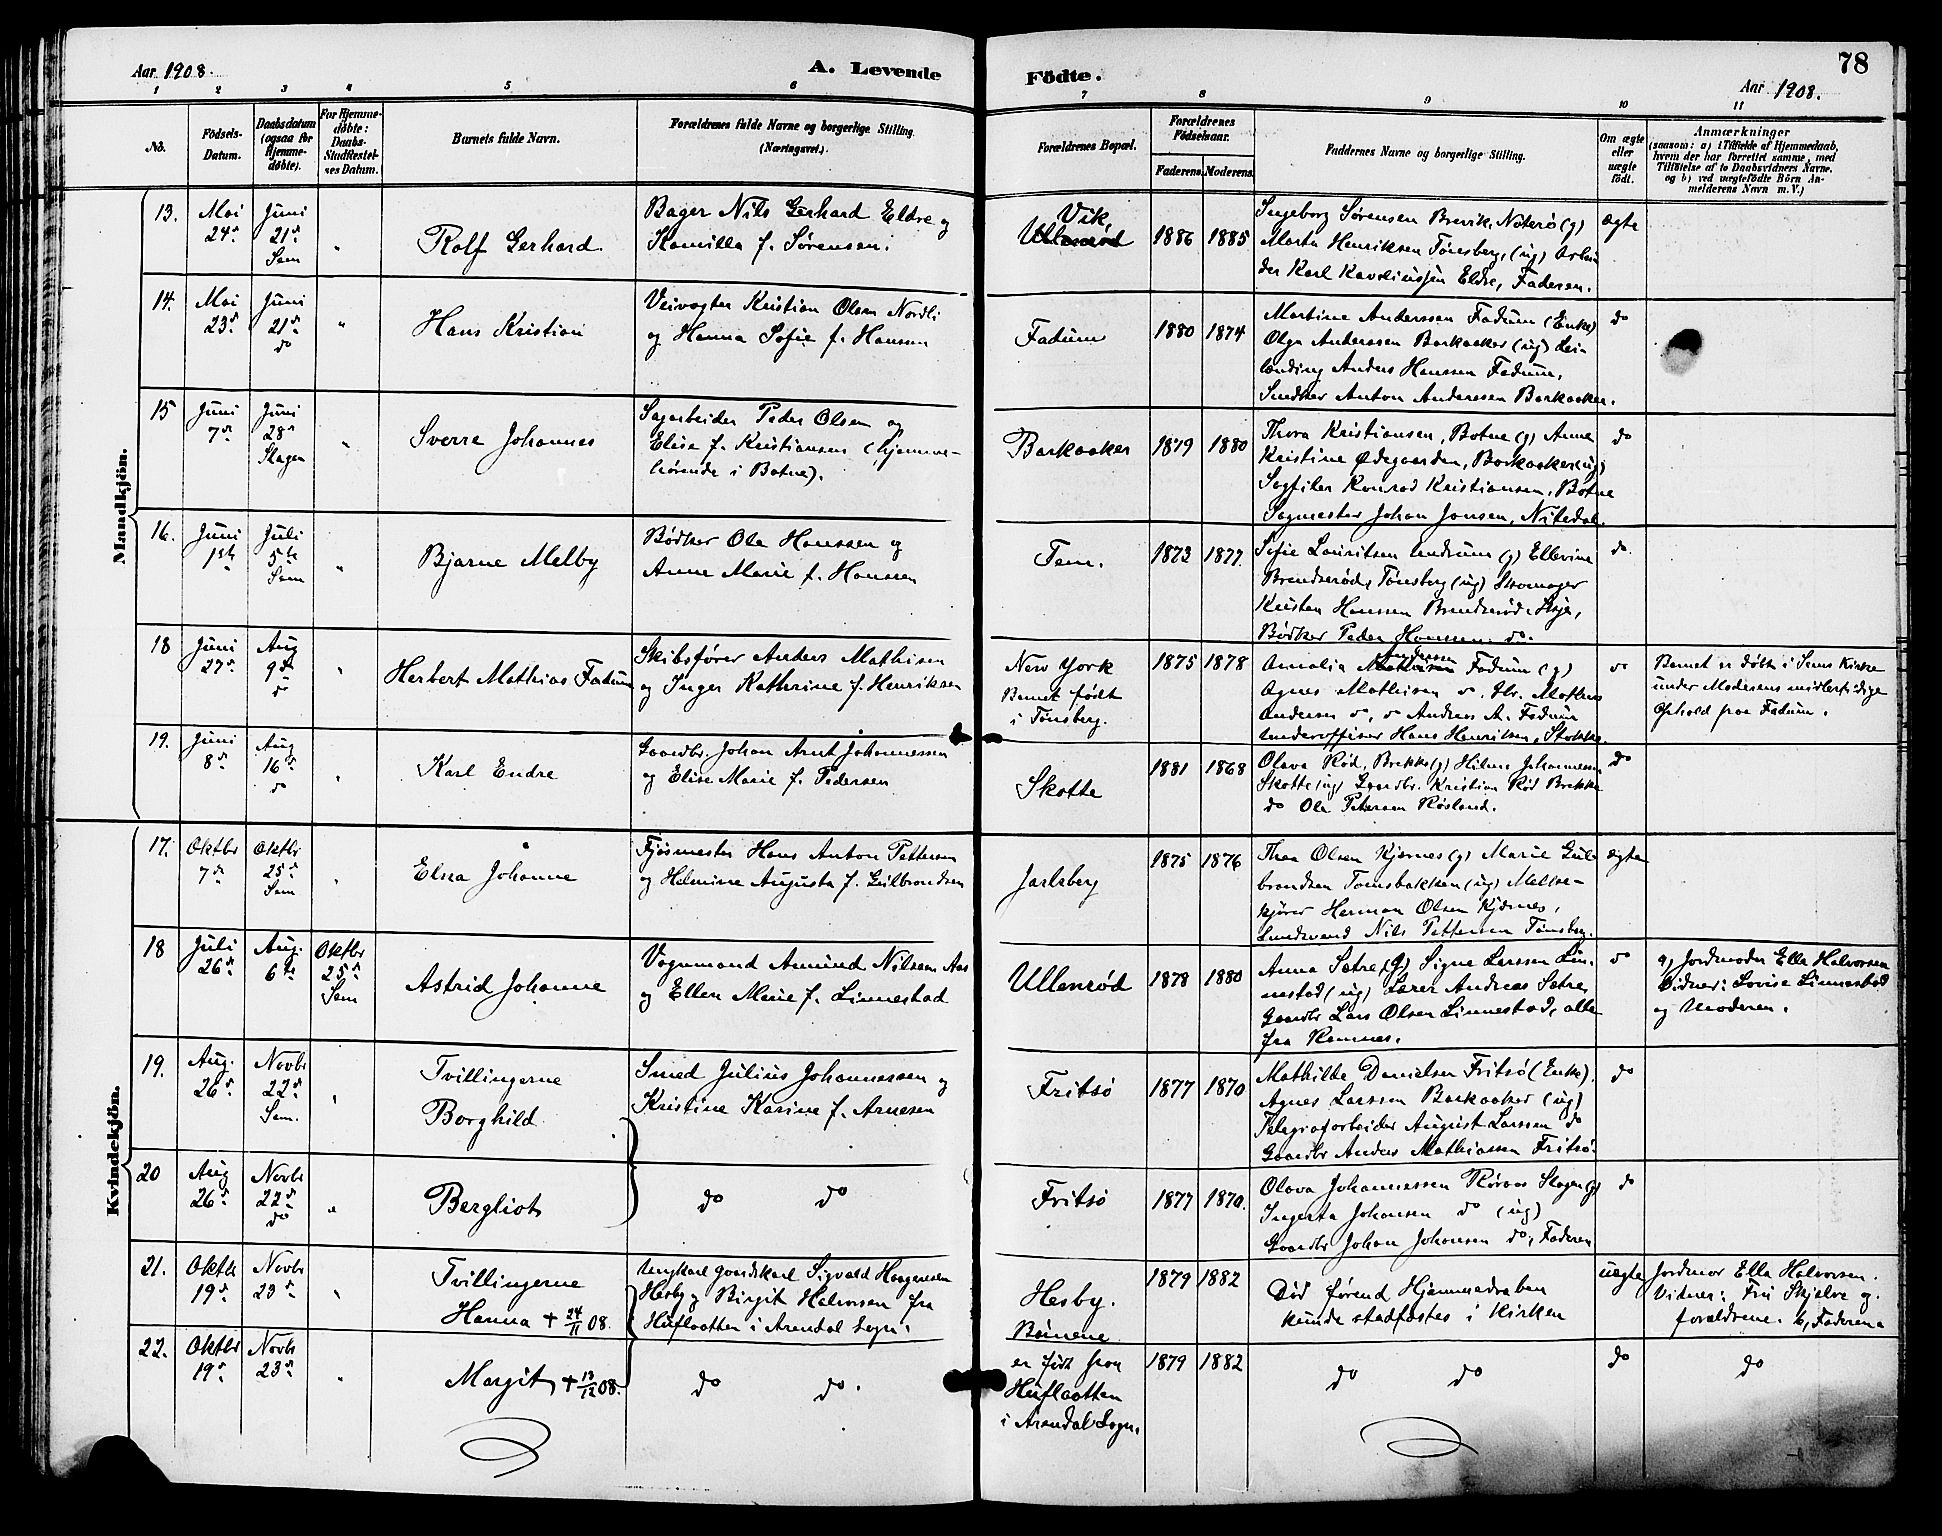 Aar 1908.
A. Levende
Födte.
Aar 1908.
78
1 2 3 4 5 6 7 8 9 10 11
No.
Födsels-
Datum.
Daabsdatum
(ogsaa for
Hjemme-
døbte).
For Hjemme-
døbte:
Daabs-
Stadfæstel-
ses Datum.
Barnets fulde Navn.
Forældrenes fulde Navne og borgerlige Stilling.
(Næringsvei.)
Forældrenes Bopæl.
Forældrenes
Födselsaar.
Faderens. Moderens.
Faddernes Navne og borgerlige Stilling.
Om ægte
eller
uægte
födt.
Anmærkninger
(saasom: a) i Tilfælde af Hjemmedaab,
hvem der har forrettet samme, med
Tilföielse af to Daabsvidners Navne.
og b) ved uægtefödte Börn An-
melderens Navn m. V.)
Mandkjön.
13.
Mai
24de
Juni
21de
Sem
"
Rolf Gerhard
Bager Nils Gerhard Eldre og
Kamilla f. Sørensen.
Vik
Ullenrød
1886 1885
Ingeborg Sørensen Brevik, Nøterø (g)
Marta Henriksen Tønsberg, (ug) Arbei
der Karl Eldre, Faderen.
ægte
14.
Mai
23de
Juni
21de
do
"
Hans Kristian
Veivogter Kristian Olsen Nordli
og Hanna Sofie f. Hansen
Fadum
1880 1874
Martine Anderssen Fadum (Enke)
Olga Anderssen Barkaaker (ug) Lei-
lænding Anders Hanssen Fadum,
Snedker Anton Anderssen Barkaaker.
do
15
Juni
7de
Juni
28de
Slagen
"
Sverre Johannes
Sagarbeider Peder Olsen og
Elise f. Kristiansen (hjemme-
hørende i Botne).
Barkaaker
1879 1880
Thora Kristiansen, Botne (g) Anna
Kristine Ødegaarden, Barkaaker (ug)
Sagfiler Konrad Kristiansen, Botne
Sagmester Johan Jonsen, Nitedal.
do
16.
Juni
1ste
Juli
5te
Sem
"
Bjarne Melby
Bødker Ole Hanssen og
Anne Marie f. Hanssen
Tem.
1873 1877.
Sofie Lauritsen Undrum (g) Ellevine
Brendserød, Tønsberg (ug) Skomager
Kristen Hanssen Brendserød, Skje,
Bødker Peder Hanssen do.
do.
18
Juni
27de
Aug
9de
do
"
Herbert Mathias Fadum
Skibsfører Anders Mathisen
og Inger Kathrine f. Henriksen
New York
Barnet født
i Tønsberg.
1875 1878
Anderssen
Amalia Mathisen Fadum (g)
Agnes Mathisen do. Hr. Mathias
Andersen do, do Andreas A. Fadum
Underoffiser Hans Henriksen, Stokke.
do
Barnet er døbt i Sems Kirke
under Moderens midlertidige
Ophold paa Fadum.
19.
Juni
8de
Aug
16de
do
"
Karl Endre
Gaardbr. Johan Arnt Johannessen
og Elise Marie f. Pedersen
Skotte
1881 1868
Olava Rød, Brekke (g) Hilma Johannessen
Skotte (ug) Gaardbr. Kristian Rød Brekke
do Ole Petersen Røsland.
do
Kvindekjön.
17.
Oktbr
7de
Oktbr
25de
Sem
"
Elna Johanne
Fjøsmester Hans Anton Pettersen
og Helmine Augusta f. Gulbrandsen
Jarlsberg
1875 1876
Thea Olsen Kjernes (g) Marie Gul-
brandsen Tomsbakken (ug) Melke-
kjører Herman Olsen Kjernes,
Nils Pettersen Tønsberg.
ægte
18
Juli
26de
Aug.
6te
Oktbr
25de
Sem
Astrid Johanne
Vognmand Amund Nilsen Aas
og Ellen Marie f. Linnestad
Ullenrød
1878 1880
Anna Sætre (g) Signe Larssen Lin-
nestad (ug) Lærer Andreas Sætre
Gaardbr Lars Olsen Linnestad, alle
fra Ramnes.
do
a) Jordmoder Ella Halvorsen
Vidner: Lovise Linnestad
og Moderen.
19.
Aug.
26de
Novbr
22de
Sem.
"
Tvillingerne
Borghild
Smed Julius Johannessen og
Kristine Karine f. Arnesen
Fritsø
1877 1870
Mathilde Danielsen Fritsø (Enke).
Agnes Larssen Barkaaker (ug)
Telegrafarbeider August Larssen do
Gaardbr Anders Mathiassen Fritsø.
do
20
Aug
26de
Novbr
22de
do
"
Bergliot
do do
Fritsø
1877 1870.
Olava Johannessen Røraas Slagen (g)
Ingerta Johansen do (ug)
Gaardbr Johan Johansen do, Faderen
do
21.
Oktbr
19de
Novbr
23de
"
Tvillingerne
Hanna + 24/11 08.
Ungkarl gaardskarl Sigvald Haagensen
Hesby og Birgit Halvorsen fra
Huflaatten i Arendal Sogn.
Hesby.
Børnene
1879 1882
Død førend Hjemmedaaben
kunde stadfæstes i Kirken
uægte
Jordmor Ella Halvorsen.
Vidner: Fru Skjelve og
forældrene. b, Faderen
22.
Oktbr
19de
Novbr
23de
"
Margit + 13/12 08.
do do.
er født paa
Huflaatten
i Arendal Sogn.
1879 1882
do do
do
do